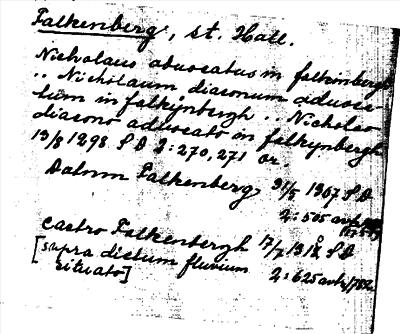 Falkenberg, st. Hall.
Nicholaus advocatus in falkinbergh
.. Nicholaum, diaconum advoca-
tum in falkynbergh .. Nicholao
diacono advocato in falkynbergh
13/8 1298 SD 2:270, 271 or.
Datum Falkenberg, 31/5 1307 SD
2:505 avskr
Castro Falkenbergh 17/7 131 SD
[supra dictum fluvium 2:625 avskr
situato]